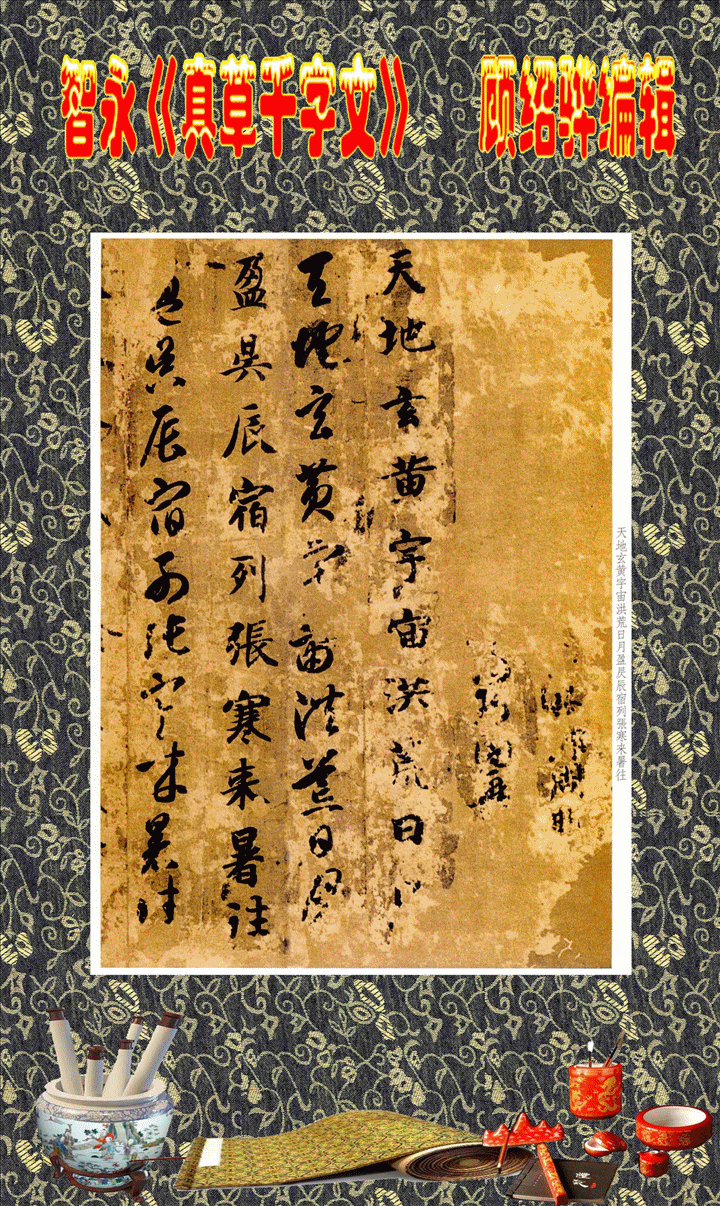 智永《真草千字文》 顾绍骅编辑
天地玄黄宇宙洪荒日月盈昃辰宿列張寒来暑往
天地玄黄宇宙洪荒日月
天地玄黄宇宙洪荒日月
盈昃辰宿列張寒来暑往
盈昃辰宿列張寒来暑往